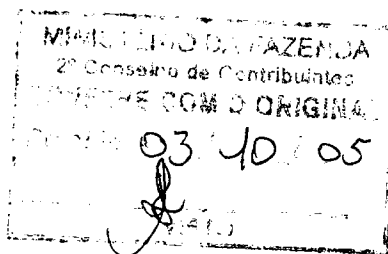 MINISTÉRIO DA FAZENDA
2º Conselho de Contribuintes
CONFERE COM O ORIGINAL
03 10 05